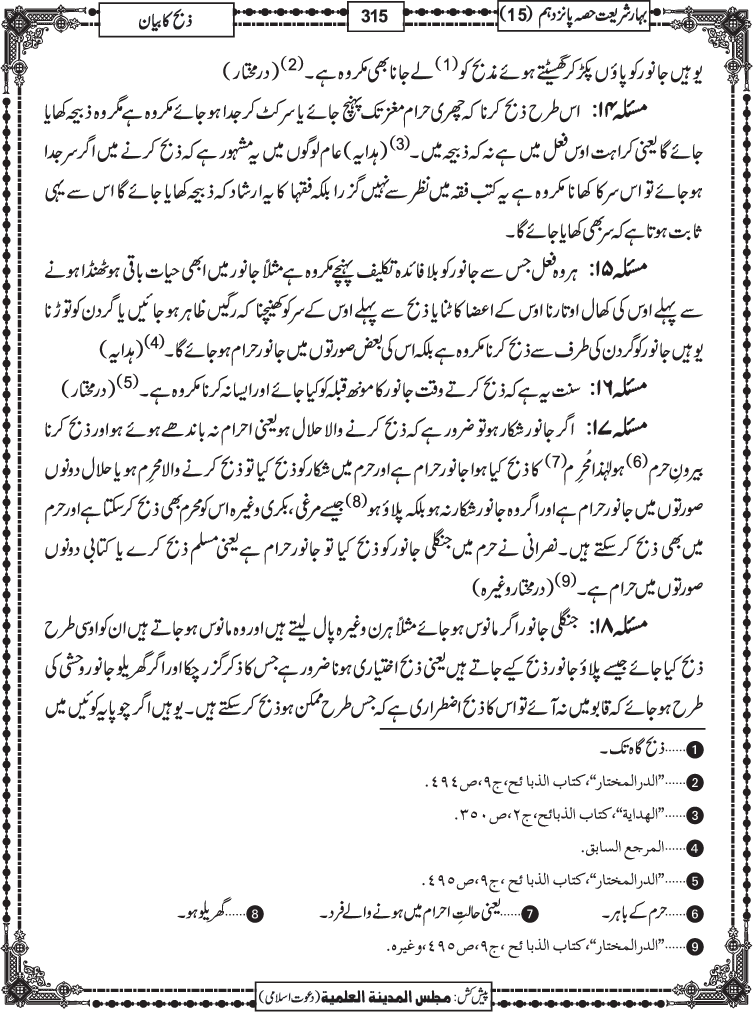 بہار شریعت حصہ پانزدہم (15)
315
ذبح کا بیان
یوہیں جانور کو پاؤں پکڑ کر گھسیٹتے ہوئے مذبح کو (1) لے جانا بھی مکروہ ہے۔ (2) (درمختار)
مسئلہ ۱۴: اس طرح ذبح کرنا کہ چھری حرام مغز تک پہنچ جائے یا سر کٹ کر جدا ہو جائے مکروہ ہے مگر وہ ذبیحہ کھایا
جائے گا یعنی کراہت اوس فعل میں ہے نہ کہ ذبیحہ میں۔ (3) (ہدایہ) عام لوگوں میں یہ مشہور ہے کہ ذبح کرنے میں اگر سر جدا
ہو جائے تو اس سر کا کھانا مکروہ ہے یہ کتب فقہ میں نظر سے نہیں گزرا بلکہ فقہا کا یہ ارشاد کہ ذبیحہ کھایا جائے گا اس سے یہی
ثابت ہوتا ہے کہ سر بھی کھایا جائے گا۔
مسئلہ ۱۵: ہر وہ فعل جس سے جانور کو بلا فائدہ تکلیف پہنچے مکروہ ہے مثلاً جانور میں ابھی حیات باقی ہو ٹھنڈا ہونے
سے پہلے اوس کی کھال اوتارنا اوس کے اعضا کاٹنا یا ذبح سے پہلے اوس کے سر کو کھینچنا کہ رگیں ظاہر ہو جائیں یا گردن کو توڑنا
یوہیں جانور کو گردن کی طرف سے ذبح کرنا مکروہ ہے بلکہ اس کی بعض صورتوں میں جانور حرام ہو جائے گا۔ (4) (ہدایہ)
مسئلہ ۱۶: سنت یہ ہے کہ ذبح کرتے وقت جانور کا مونھ قبلہ کو کیا جائے اور ایسا نہ کرنا مکروہ ہے۔ (5) (درمختار)
مسئلہ ۱۷: اگر جانور شکار ہو تو ضرور ہے کہ ذبح کرنے والا حلال ہو یعنی احرام نہ باندھے ہوئے ہو اور ذبح کرنا
بیرونِ حرم (6) ہو لہٰذا مُحرِم (7) کا ذبح کیا ہوا جانور حرام ہے اور حرم میں شکار کو ذبح کیا تو ذبح کرنے والا محرِم ہو یا حلال دونوں
صورتوں میں جانور حرام ہے اور اگر وہ جانور شکار نہ ہو بلکہ پلاؤ ہو (8) جیسے مرغی، بکری وغیرہ اس کو محرم بھی ذبح کر سکتا ہے اور حرم
میں بھی ذبح کر سکتے ہیں۔ نصرانی نے حرم میں جنگلی جانور کو ذبح کیا تو جانور حرام ہے یعنی مسلم ذبح کرے یا کتابی دونوں
صورتوں میں حرام ہے۔ (9) (درمختار وغیرہ)
مسئلہ ۱۸: جنگلی جانور اگر مانوس ہو جائے مثلاً ہرن وغیرہ پال لیتے ہیں اور وہ مانوس ہو جاتے ہیں ان کو اوسی طرح
ذبح کیا جائے جیسے پلاؤ جانور ذبح کیے جاتے ہیں یعنی ذبح اختیاری ہونا ضرور ہے جس کا ذکر گزر چکا اور اگر گھریلو جانور وحشی کی
طرح ہو جائے کہ قابو میں نہ آئے تو اس کا ذبح اضطراری ہے کہ جس طرح ممکن ہو ذبح کر سکتے ہیں۔ یوہیں اگر چوپایہ کوئیں میں
1 ......ذبح گاہ تک۔
2 ......"الدرالمختار"، کتاب الذبائح، ج۹، ص٤٩٤.
3 ......"الهداية"، کتاب الذبائح، ج۲، ص۳٥۰.
4 ......المرجع السابق.
5 ......"الدرالمختار"، کتاب الذبائح، ج۹، ص٤٩٥.
6 ......حرم کے باہر۔ 7 ......یعنی حالتِ احرام میں ہونے والے فرد۔ 8 ......گھریلو ہو۔
9 ......"الدرالمختار"، کتاب الذبائح، ج۹، ص٤٩٥، وغیرہ.
پیش کش: مجلس المدينة العلمية (دعوت اسلامی)